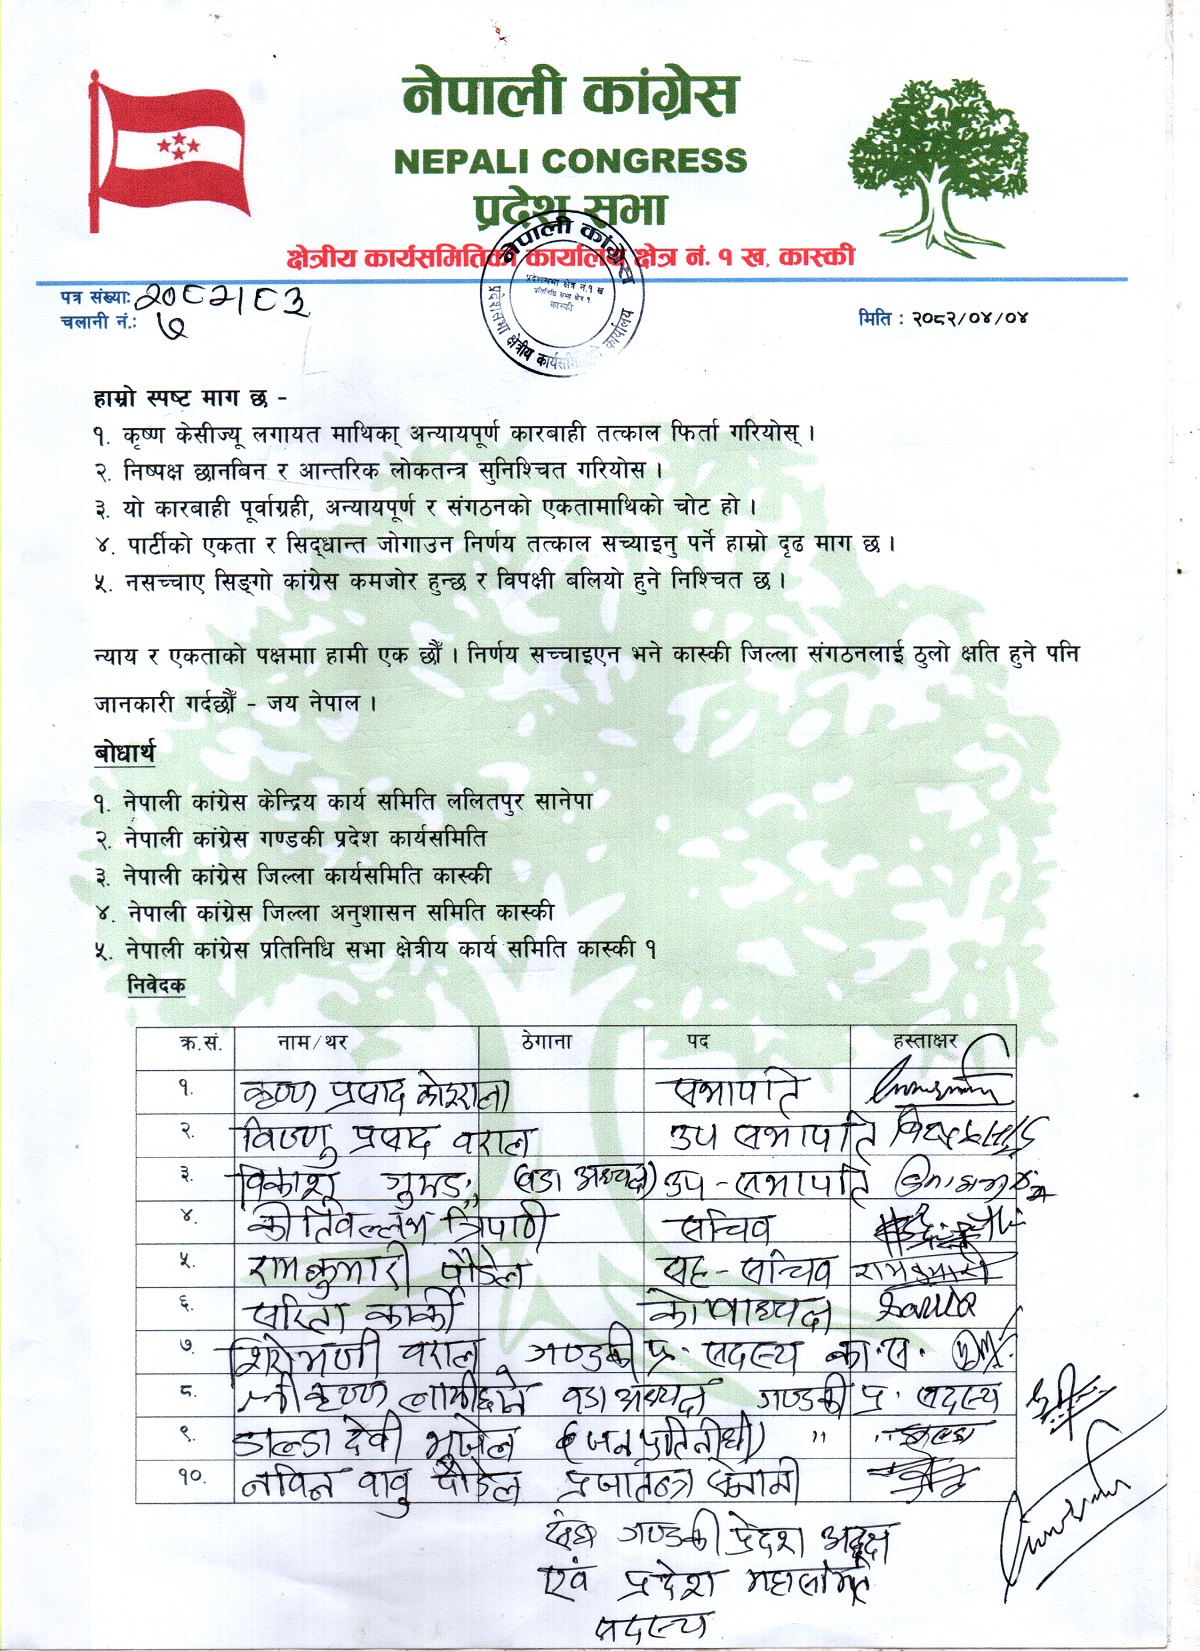 नेपाली कांग्रेस
NEPALI CONGRESS
प्रदेश सभा
क्षेत्रीय कार्यसमितिको कार्यालय क्षेत्र नं. १ ख, कास्की
नेपाली कांग्रेस
प्रदेशसभा क्षेत्र नं.१ ख
प्रतिनिधि सभा क्षेत्र १
कास्की
प्रदेशसभा क्षेत्रीय कार्यसमितिको कार्यालय
पत्र संख्याः २०८२/८३
चलानी नं.: ७
मिति : २०८२/०४/०४
हाम्रो स्पष्ट माग छ -
१. कृष्ण केसीज्यू लगायत माथिका् अन्यायपूर्ण कारबाही तत्काल फिर्ता गरियोस् ।
२. निष्पक्ष छानबिन र आन्तरिक लोकतन्त्र सुनिश्चित गरियोस ।
३. यो कारबाही पूर्वाग्रही, अन्यायपूर्ण र संगठनको एकतामाथिको चोट हो ।
४. पार्टीको एकता र सिद्धान्त जोगाउन निर्णय तत्काल सच्याइनु पर्ने हाम्रो दृढ माग छ ।
५. नसच्चाए सिङ्गो कांग्रेस कमजोर हुन्छ र विपक्षी बलियो हुने निश्चित छ ।
न्याय र एकताको पक्षमाा हामी एक छौँ । निर्णय सच्चाइएन भने कास्की जिल्ला संगठनलाई ठुलो क्षति हुने पनि
जानकारी गर्दछौँ - जय नेपाल ।
बोधार्थ
१. नेपाली कांग्रेस केन्द्रिय कार्य समिति ललितपुर सानेपा
२. नेपाली कांग्रेस गण्डकी प्रदेश कार्यसमिति
३. नेपाली कांग्रेस जिल्ला कार्यसमिति कास्की
४. नेपाली कांग्रेस जिल्ला अनुशासन समिति कास्की
५. नेपाली कांग्रेस प्रतिनिधि सभा क्षेत्रीय कार्य समिति कास्की १
निवेदक
क्र.सं. नाम/थर ठेगाना पद हस्ताक्षर
१. कृष्ण प्रसाद कोइराला सभापति
२. विष्णु प्रसाद बराल उप सभापति
३. विकाश गुरुङ (वडा अध्यक्ष) उप-सभापति
४. कीर्तिवल्लभ त्रिपाठी सचिव
५. रामकुमारी पौडेल सह-सचिव रामकुमारी
६. सरिता कार्की कोषाध्यक्ष
७. शिरोमणी बराल गण्डकी प्र. सदस्य का.स.
८. श्रीकृष्ण लामिछाने वडा अध्यक्ष गण्डकी प्र. सदस्य
९. डाल्डा देवी भुजेल (जनप्रतिनिधी) " "
१०. नविन बाबु पौडेल प्रजातन्त्र सेनानी
संघ गण्डकी प्रदेश अध्यक्ष
एवं प्रदेश महासमिति
सदस्य